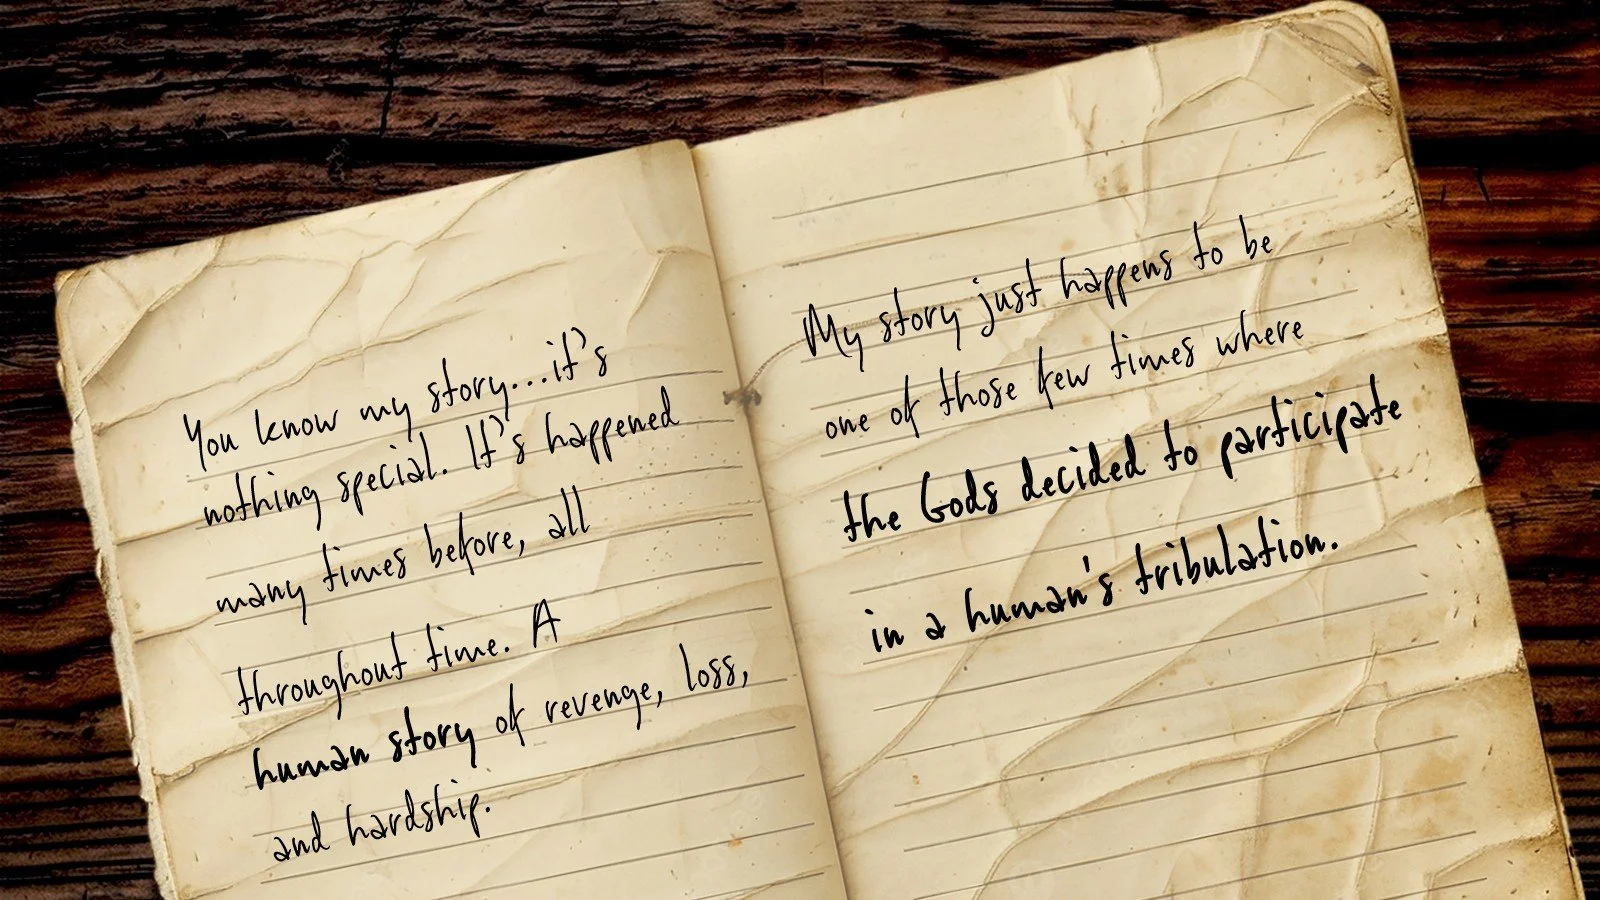 You know my story...it's
nothing special. It's happened
many times before, all
throughout time. A
human story of revenge, loss,
and hardship.
My story just happens to be
one of those few times where
the Gods decided to participate
in a human's tribulation.